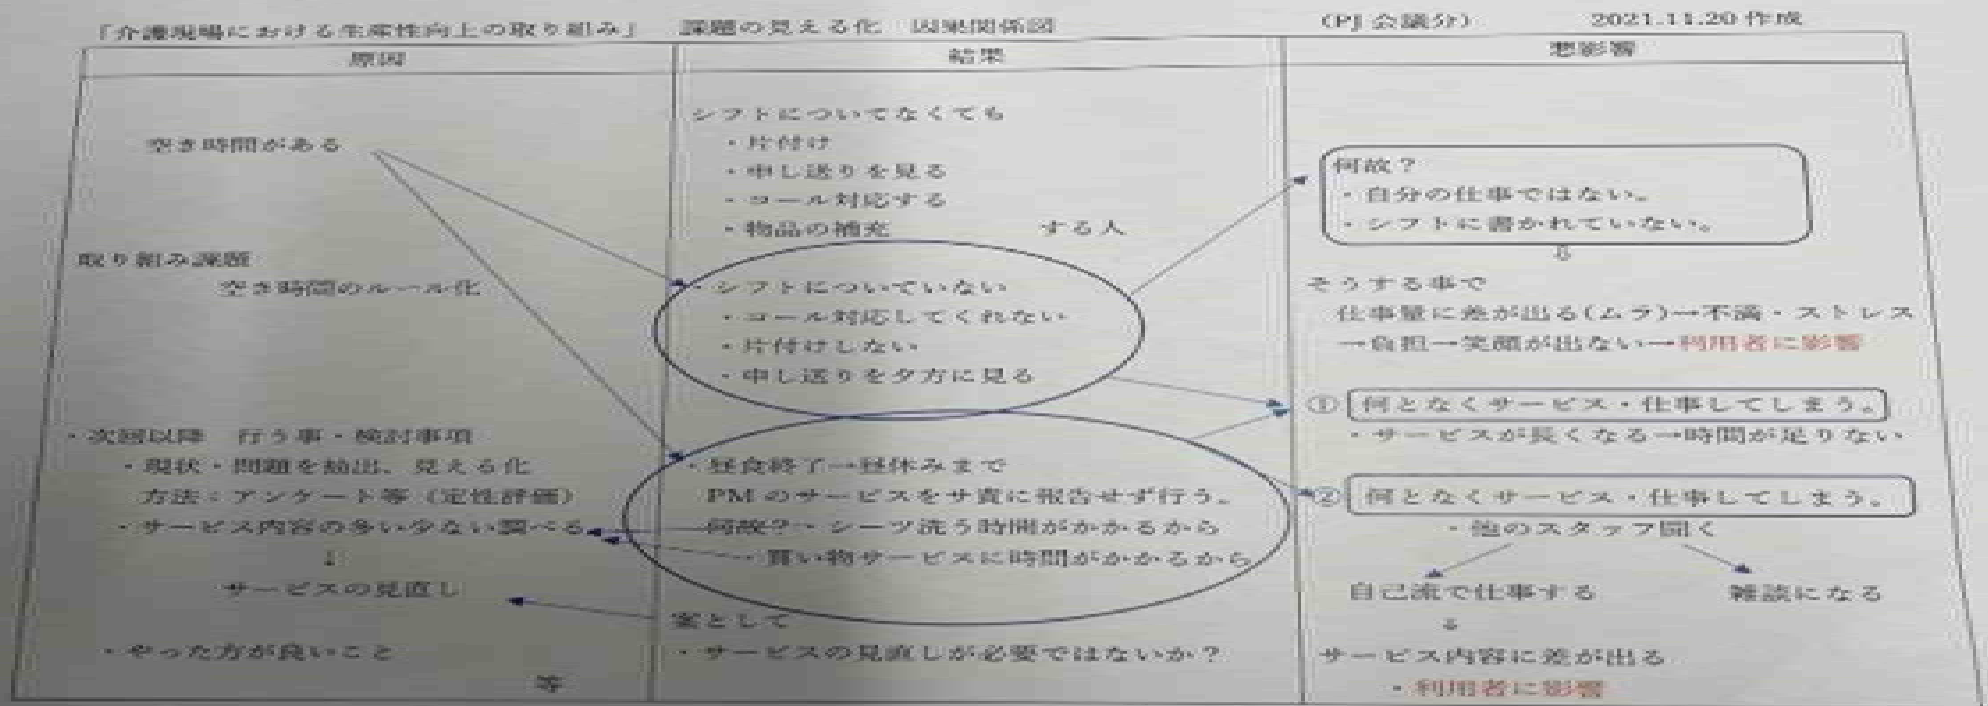 「介護現場における生産性向上の取り組み」　課題の見える化　因果関係図　（PJ 会議分）　2021.11.20 作成
原因
空き時間がある
取り組み課題
空き時間のルール化
・次回以降　行う事・検討事項
・現状・問題を抽出、見える化
方法：アンケート等（定性評価）
・サービス内容の多い少ない調べる
↓
サービスの見直し
・やった方が良いこと
等
結果
シフトについてなくても
・片付け
・申し送りを見る
・コール対応する
・物品の補充　する人
シフトについていない
・コール対応してくれない
・片付けしない
・申し送りを夕方に見る
・昼食終了→昼休みまで
PM のサービスをサ責に報告せず行う。
何故？・シーツ洗う時間がかかるから
・買い物サービスに時間がかかるから
案として
・サービスの見直しが必要ではないか？
悪影響
何故？
・自分の仕事ではない。
・シフトに書かれていない。
⇩
そうする事で
仕事量に差が出る(ムラ)→不満・ストレス
→負担→笑顔が出ない→利用者に影響
① 何となくサービス・仕事してしまう。
・サービスが長くなる→時間が足りない
② 何となくサービス・仕事してしまう。
・他のスタッフ聞く
自己流で仕事する　雑談になる
↓
サービス内容に差が出る
・利用者に影響